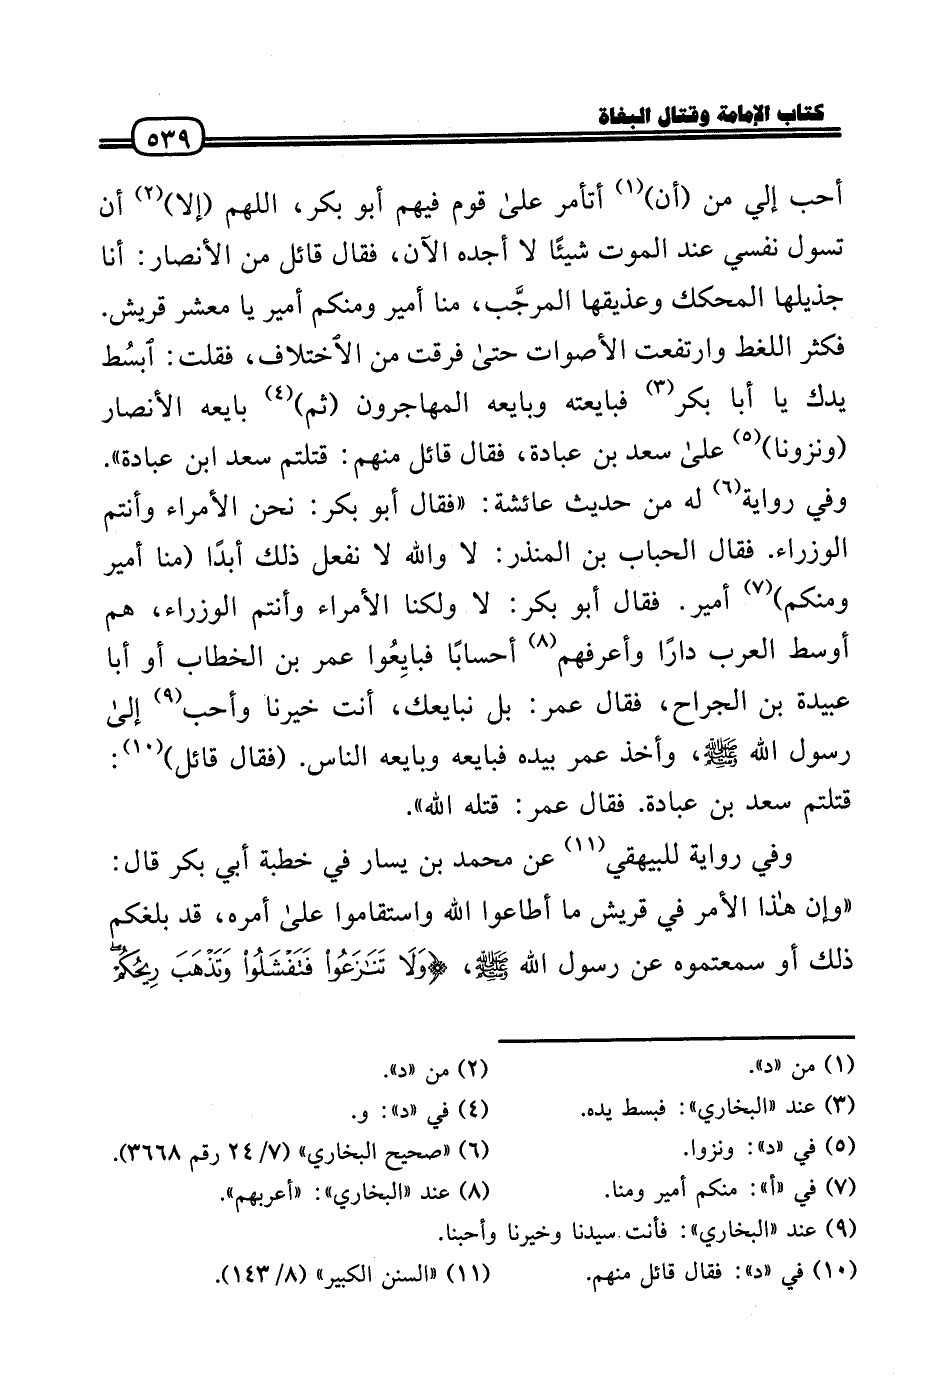 كتاب الإمامة وقتال البغاة
٥٣٩
أحب إلي من (أن)(١) أتأمر علىٰ قوم فيهم أبو بكر، اللهم (إلا)(٢) أن
تسول نفسي عند الموت شيئًا لا أجده الآن، فقال قائل من الأنصار: أنا
جذيلها المحكك وعذيقها المرجَّب، منا أمير ومنكم أمير يا معشر قريش.
فكثر اللغط وارتفعت الأصوات حتىٰ فرقت من الٱختلاف، فقلت: ٱبسُط
يدك يا أبا بكر(٣) فبايعته وبايعه المهاجرون (ثم)(٤) بايعه الأنصار
(ونزونا)(٥) علىٰ سعد بن عبادة، فقال قائل منهم: قتلتم سعد ابن عبادة».
وفي رواية(٦) له من حديث عائشة: «فقال أبو بكر: نحن الأمراء وأنتم
الوزراء. فقال الحباب بن المنذر: لا والله لا نفعل ذلك أبدًا (منا أمير
ومنكم)(٧) أمير. فقال أبو بكر: لا ولكنا الأمراء وأنتم الوزراء، هم
أوسط العرب دارًا وأعرفهم(٨) أحسابًا فبايِعُوا عمر بن الخطاب أو أبا
عبيدة بن الجراح، فقال عمر: بل نبايعك، أنت خيرنا وأحب(٩) إلىٰ
رسول الله ﷺ، وأخذ عمر بيده فبايعه وبايعه الناس. (فقال قائل)(١٠):
قتلتم سعد بن عبادة. فقال عمر: قتله الله».
وفي رواية للبيهقي(١١) عن محمد بن يسار في خطبة أبي بكر قال:
«وإن هٰذا الأمر في قريش ما أطاعوا الله واستقاموا علىٰ أمره، قد بلغكم
ذلك أو سمعتموه عن رسول الله ﷺ، ﴿وَلَا تَنَٰزَعُواْ فَتَفْشَلُواْ وَتَذْهَبَ رِيحُكُمْۖ
(١) من «د».
(٢) من «د».
(٣) عند «البخاري»: فبسط يده.
(٤) في «د»: و.
(٥) في «د»: ونزوا.
(٦) «صحيح البخاري» (٧/ ٢٤ رقم ٣٦٦٨).
(٧) في «أ»: منكم أمير ومنا.
(٨) عند «البخاري»: «أعربهم».
(٩) عند «البخاري»: فأنت سيدنا وخيرنا وأحبنا.
(١٠) في «د»: فقال قائل منهم.
(١١) «السنن الكبير» (٨/ ١٤٣).